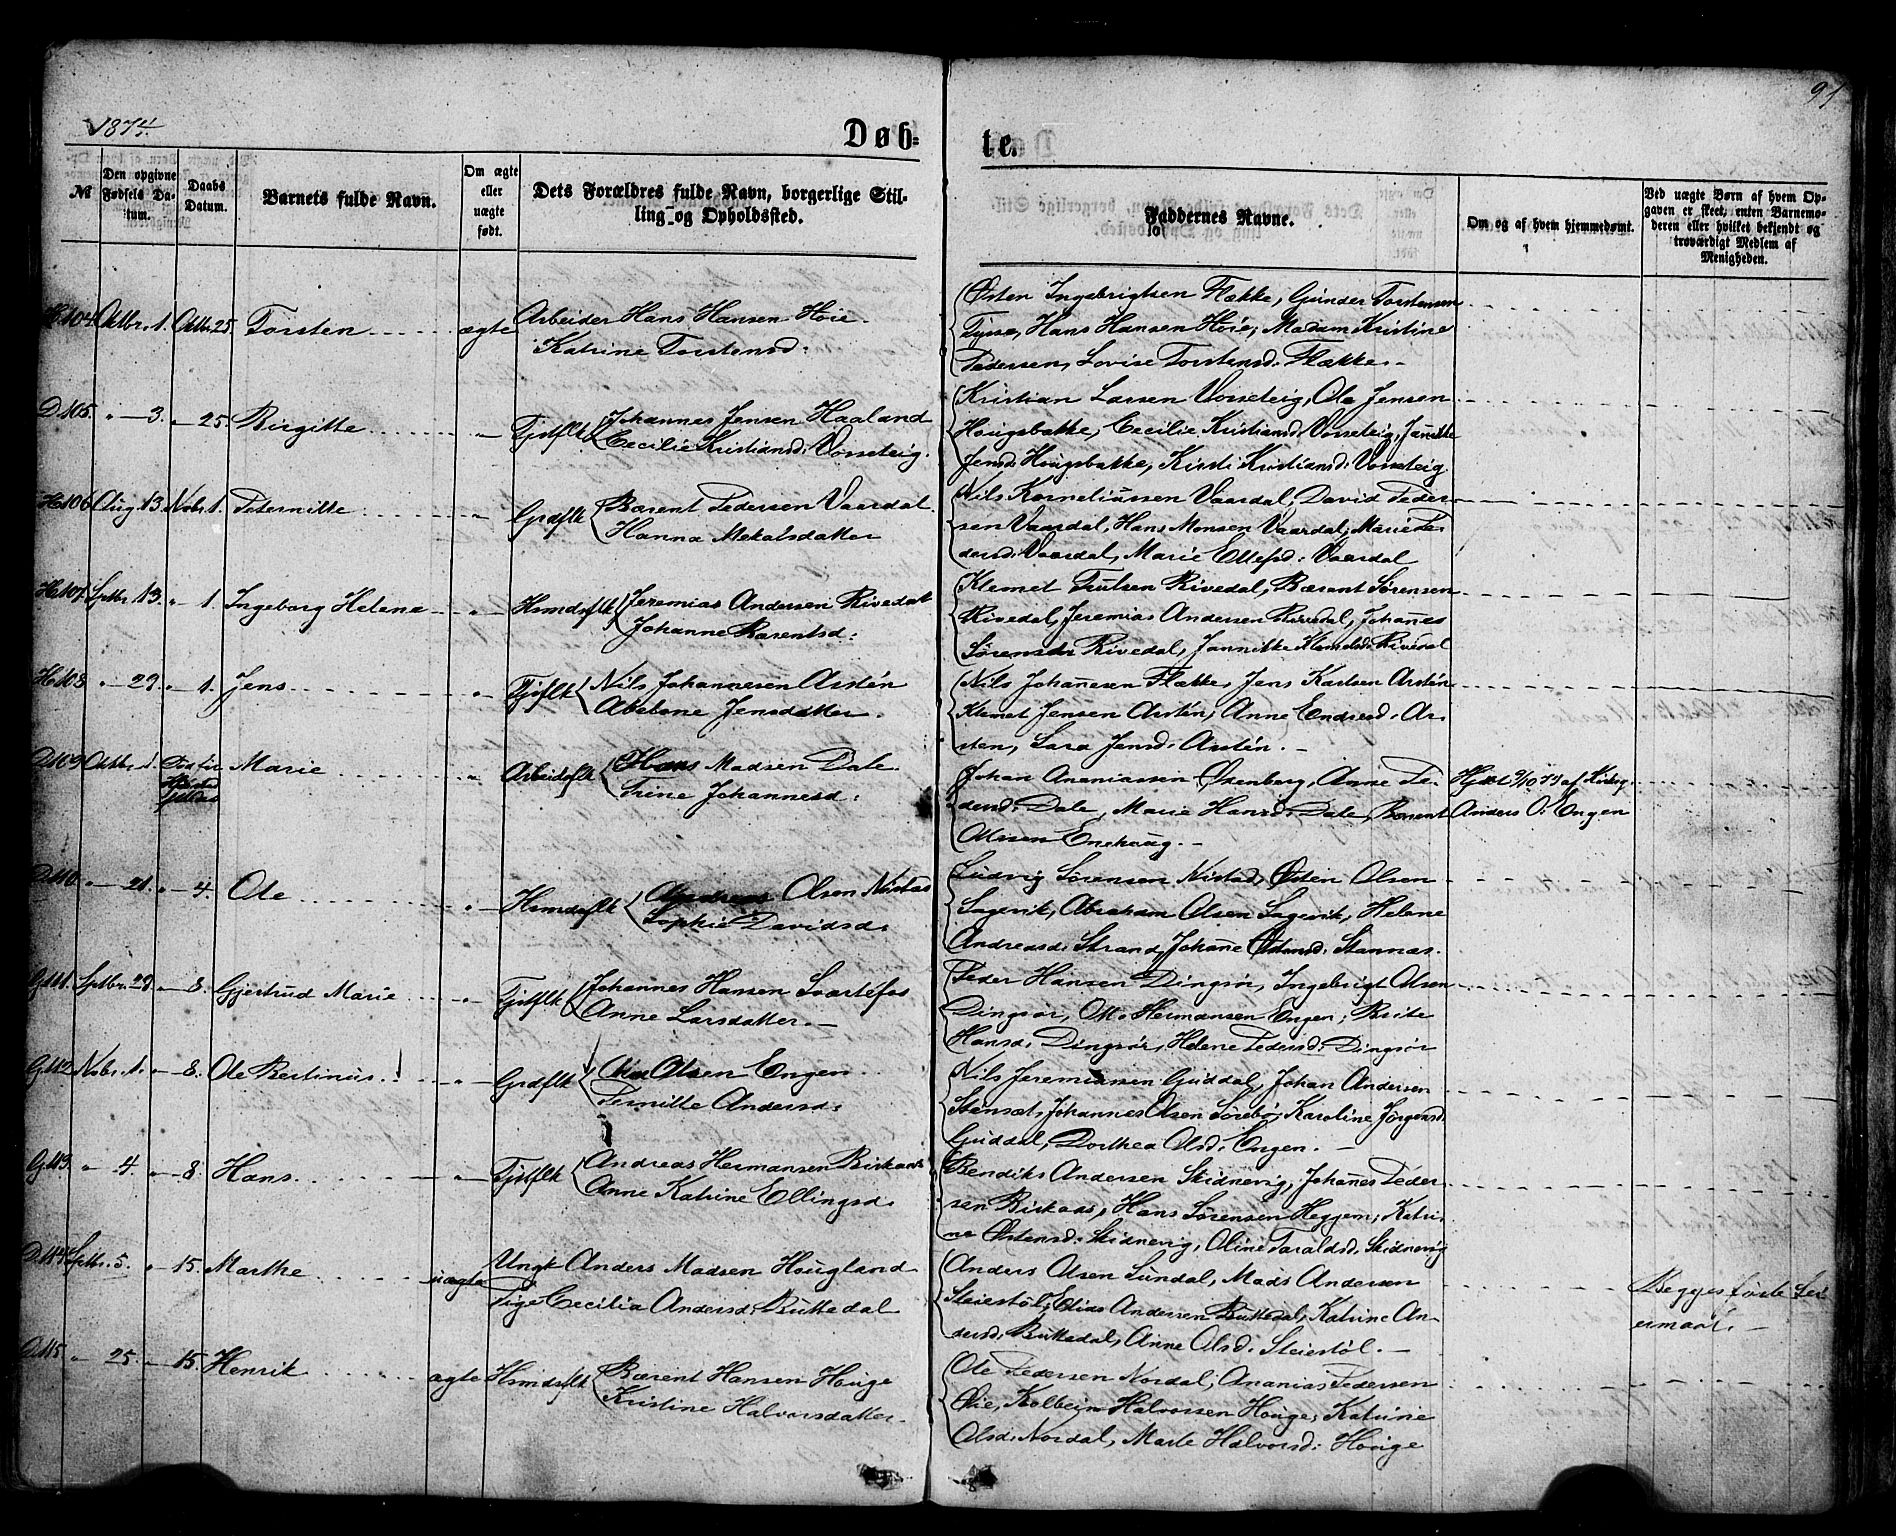 91
1874.
Døb-
te.
№
Den opgivne Fødsels Da-tum.
Daabs Datum.
Barnets fulde Navn.
Om ægte eller uægte født.
Dets Forældres fulde Navn, borgerlige Stil-ling og Opholdssted.
Faddernes Navne.
Om og af hvem hjemmedømt.
Ved uægte Børn af hvem Op-gaven er skeet, enten Barnemo-deren eller hvilket bekjendt og troværdigt Medlem af Menigheden.
H 104 Oktbr. 1. Oktbr 25. Torsten ægte Arbeider Hans Hansen Høie
Katrine Torstensd:
Østen Ingebrigtsen Flække, Gunder Torstensen
Hans Hansen Høie, Madam Kristine
Pedersen, Lovise Torstensd: Flække. -
D 105. " 3. " 25. Birgitte " Tjstflk Johannes Jensen Haaland
Cecilie Kristiansd: Vosseteig.
Kristian Larsen Vosseteig, Ole Jensen
Hougsbakke, Cecilie Kristiansd: Vosseteig, Jannikke
Jensd: Hougsbakke, Kirsti Kristiansd: Vosseteig
H 106 Aug. 13. Nobr 1. Petermitte " Grdflk Bærent Pedersen Vaardal
Hanna Mekalsdatter
Nils Korneliussen Vaardal, David Peder-
sen Vaardal, Hans Monsen Vaardal, Marie Pe-
dersd: Vaardal, Marie Ellefsd: Vaardal
H 107. Septbr. 13. " 1. Ingeborg Helene " Hsmdsflk Jeremias Andersen Rivedal
Johanne Bærentsd:
Klemet Trulsen Rivedal, Bærent Sørensen
Rivedal, Jeremias Andersen Rivedal, Johanes
Sørensen Rivedal, Jannikke Klemetsd: Rivedal
H 108 " 29. " 1. Jens " Tjstflk Nils Johannesen Arstén
Abelone Jensdatter.
Nils Johanesen Flække, Jens Karlsen Arstén
Klemet Jensen Arstén, Anne Endresd: Ar-
sten, Sara Jensd: Arstén. -
D 109 Oktbr. 1. Død før Marie " Arbeidsflk Hans Madsen Dale
Trine Johannesd:
Johan Ananiassen Øxenborg, Anne Pe-
dersd: Dale, Marie Hansd: Dale, Bærent
Olsen Enehaug. -
Hjdøbt 2/10 74 af
Anders O. Engen
D 110 " 21. " 4. Ole " Hsmdsflk Andreas Olsen Nistad
Sophie Davidsd:
Ludvig Sørensen Nistad, Østen Olsen
Sagevik, Abraham Olsen Sagevik, Helene
Andreasd: Strand, Johane Østensd: Stannæs.
G 111. Septbr. 29. " 8. Gjertrud Marie " Tjstflk Johannes Hansen Svartefos
Anne Larsdatter. -
Peder Hansen Dingsør, Ingebrigt Olsen
Dingsør, Ole Hermansen Engen, Brite
Hansd: Dingsør, Helene Pedersd: Dingsør
G 112 Nobr. 1. " 8. Ole Bertinus " Grdflk Ole Olsen Engen
Pernille Andersd:
Nils Jeremiassen Guddal, Johan Andersen
Stensæt, Johannes Olsen Sørebø, Karoline Jørgensd:
Guddal, Dorthea Olsd: Engen. -
G 113. " 4. " 8. Hans " Tjstflk Andreas Hermansen Birkaas
Anne Katrine Ellingsd.
Bendiks Andersen Skidnevig, Johanes Peder-
sen Birkaas, Hans Sørensen Heggem, Katri-
ne Østensd: Skidnevig, Oline Taraldsd: Skidnevig
D 114 Septbr. 5. " 15. Marthe uægte Ungk Anders Madsen Hougland
Pige Cecilia Andersd: Buttedal
Anders Olsen Sundal, Mads Andersen
Steiestøl, Elias Andersen Buttedal, Katrine An-
dersd: Buttedal, Anne Olsd: Steiestøl. -
Begges første Lei-
ermaal. -
D 115. " 25. " 15. Henrik ægte Hsmdsflk Bærent Hansen Houge
Kristine Halvorsdatter.
Ole Pedersen Nordal, Ananias Pedersen
Øie, Kolbein Halvorsen Houge, Katrine
Olsd: Nordal, Marte Halvorsd: Houge